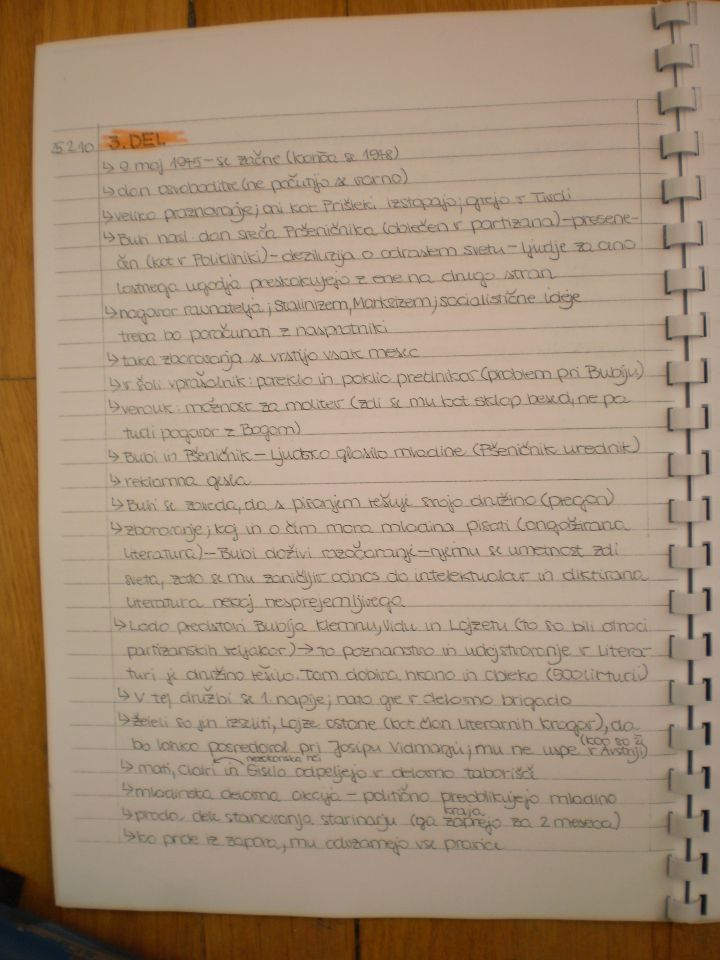 25.2.10 3. DEL
↳ 9 maj 1945 - se začne (konča se 1948)
↳ dan osvoboditve (ne počutijo se varno)
↳ veliko praznovanje; oni kot Prišleki izstopajo; grejo v Tivoli
↳ Bubi nasl. dan sreča Pšeničnika (oblečen v partizana) - presene-
čen (kot v Polikliniki) - deziluzija o odraslem svetu - ljudje za ceno
lastnega ugodja preskakujejo z ene na drugo stran
↳ nagovor ravnatelja; Stalinizem, Marksizem; socialistične ideje
treba bo poračunati z nasprotniki
↳ taka zborovanja se vrstijo vsak mesec
↳ v šoli vprašalnik: poreklo in poklic prednikov (problem pri Bubiju)
↳ verouk: možnost za molitev (zdi se mu kot sklop besed, ne pa
tudi pogovor z Bogom)
↳ Bubi in Pšeničnik - Ljudsko glasilo mladine (Pšeničnik urednik)
↳ reklamna gesla
↳ Bubi se zaveda, da s pisanjem rešuje svojo družino (pregon)
↳ zborovanje; kaj in o čim mora mladina pisati (angažirana
literatura) - Bubi doživi razočaranje - njemu se umetnost zdi
sveta, zato se mu zaničljiv odnos do intelektualcev in diktirana
literatura nekaj nesprejemljivega
↳ Lado predstavi Bubija Klemnu, Vidu in Lojzetu (to so bili otroci
partizanskih veljakov) → to poznanstvo in udejstvovanje v litera-
turi je družino rešilo. Tam dobiva hrano in obleko (500 lir tudi)
↳ V tej družbi se 1. napije; nato gre v delovno brigado
↳ želeli so jih izseliti, Lojze ostane (kot član literarnih krogov), da
bo lahko posredoval pri Josipu Vidmarju; mu ne uspe (kao so ž v Avstriji)
↳ mati, Clairi in Giselo odpeljejo v delovno taborišče
nezakonska hči
↳ mladinska delovna akcija - politično preoblikujejo mladino
↳ proda dele stanovanja starinarju (ga zaprejo za 2 meseca)
kraja
↳ ko pride iz zapora, mu odvzamejo vse pravice